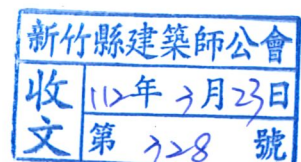 新竹縣建築師公會
收文
112年3月23日
第 328 號